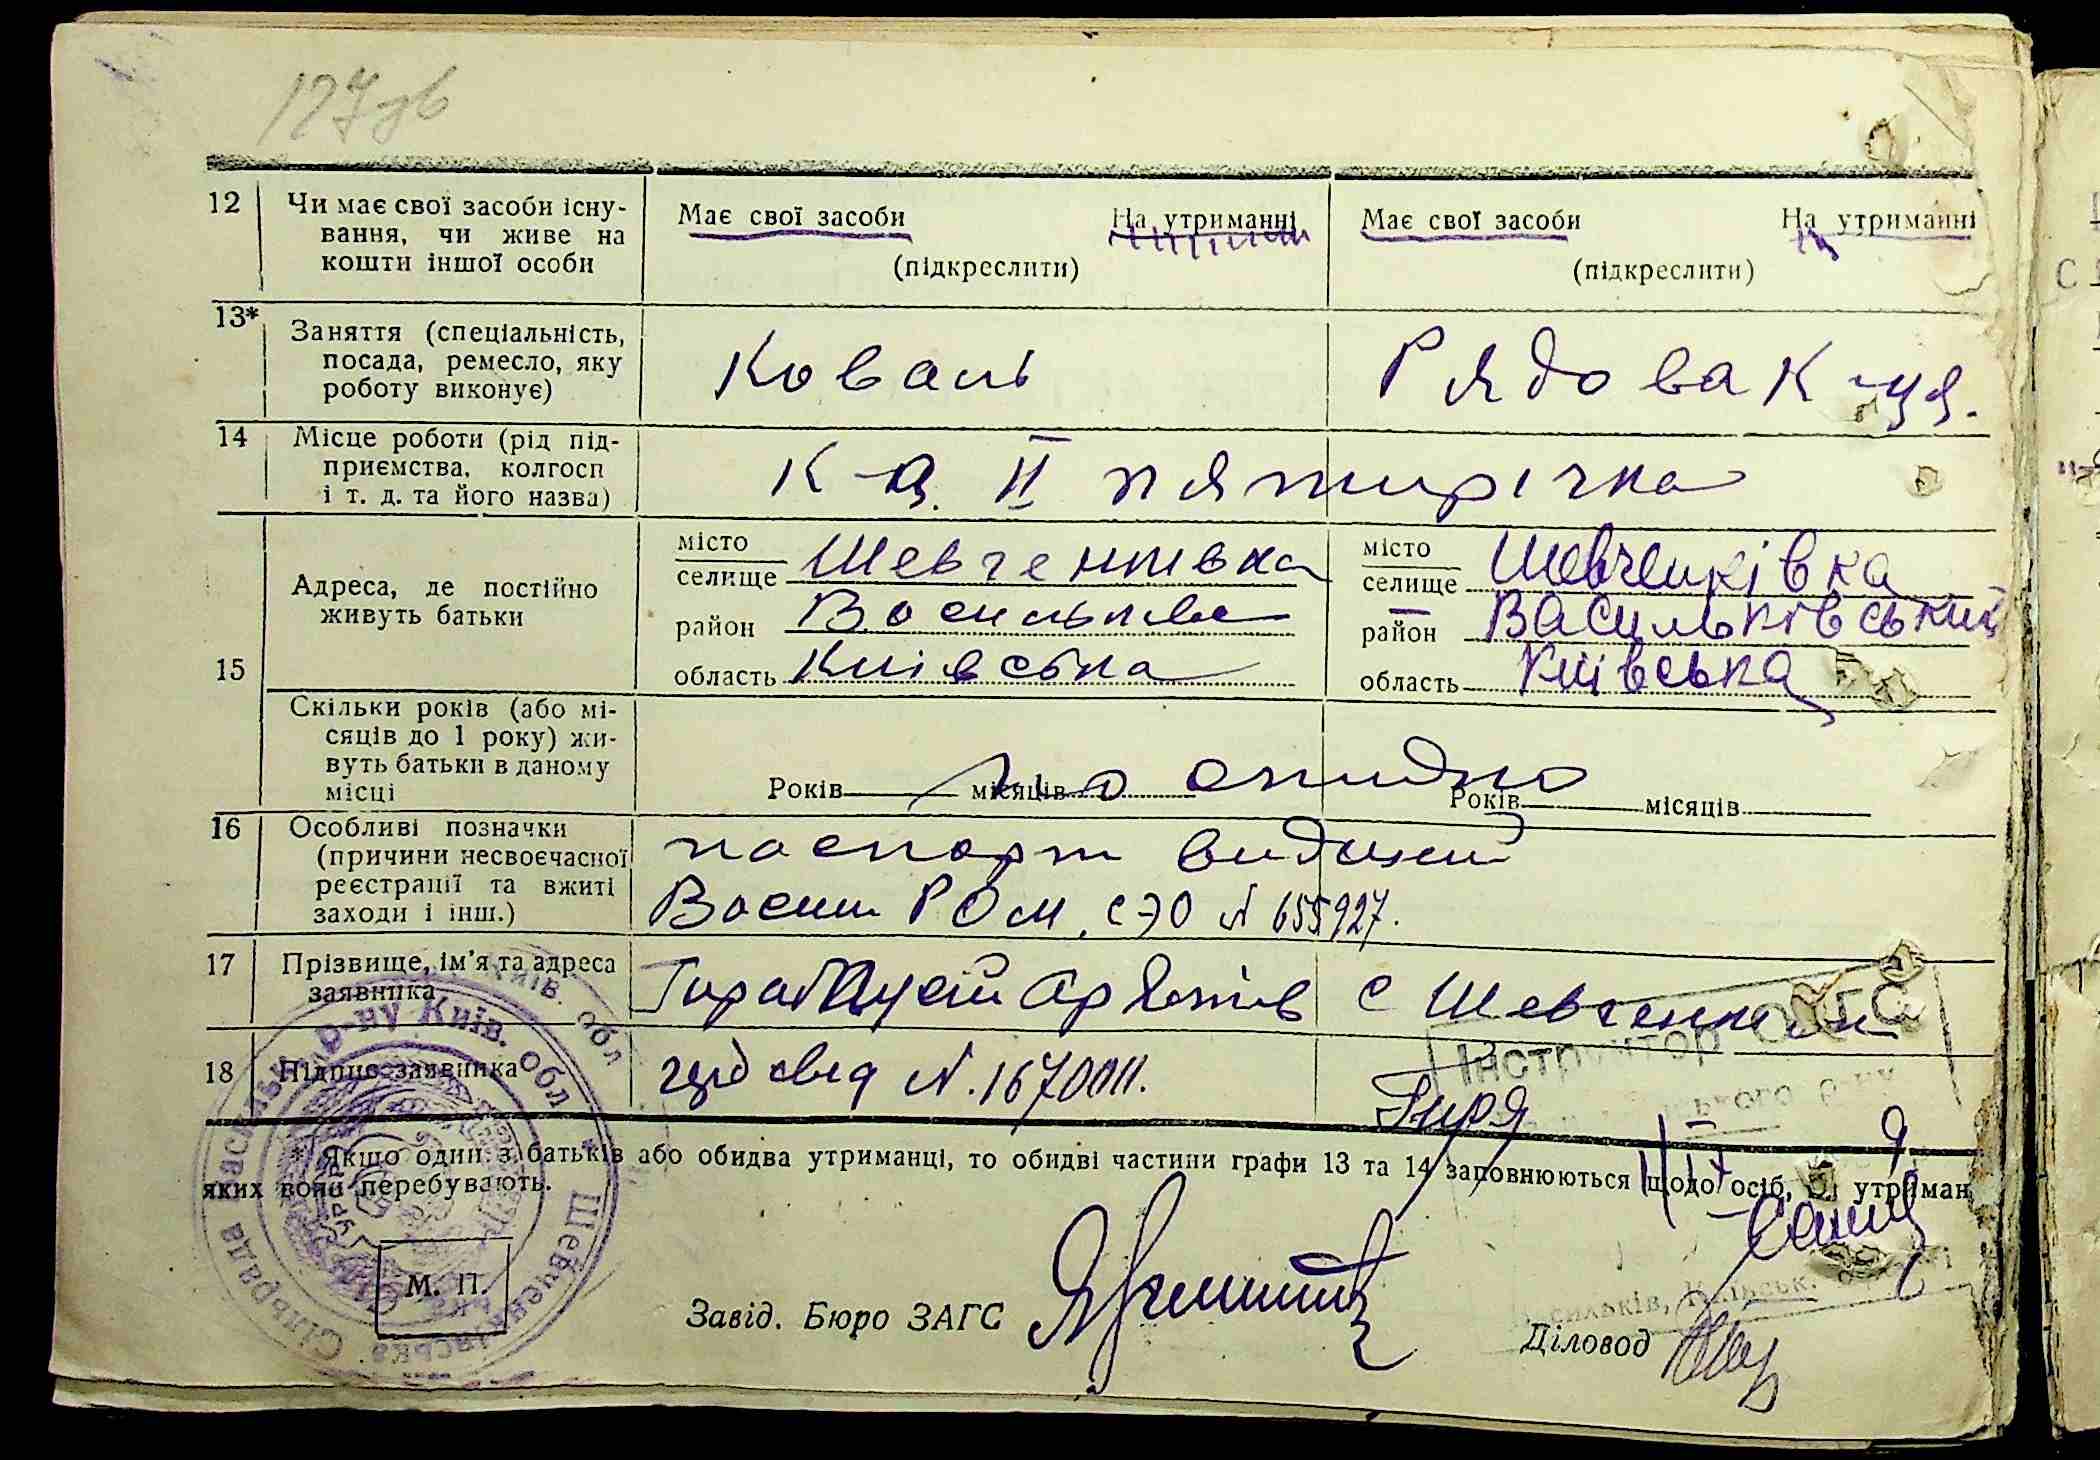 127зв
12 Чи має свої засоби існу- Має свої засоби На утриманні Має свої засоби На утриманні
вання, чи живе на
кошти іншої особи (підкреслити) (підкреслити)
13* Заняття (спеціальність,
посада, ремесло, яку Коваль Рядова к-ця.
роботу виконує)
14 Місце роботи (рід під-
приємства, колгосп К-п. ІІ пятирічка
і т. д. та його назва)
15 Адреса, де постійно
живуть батьки
місто
селище Шевченківка
район
область Київська
місто
селище Шевченківка
район Васильківський
область Київська
Скільки років (або мі-
сяців до 1 року) жи-
вуть батьки в даному
місці
Років місяців Років місяців
16 Особливі позначки
(причини несвоєчасної паспорт виданий
реєстрації та вжиті
заходи і інш.) РОМ. СЭО N 655927.
17 Прізвище, ім'я та адреса
заявника
с Шевченківка
18 Підпис заявника N. 1670011. Гиря
* Якщо один з батьків або обидва утриманці, то обидві частини графи 13 та 14 заповнюються щодо осіб, утриман
яких вони перебувають.
М. П.
Завід. Бюро ЗАГС
Діловод
Інструктор
Київ. обл
Шевченківська Сільрада Васильк. р-ну Київ. Обл
УРСР